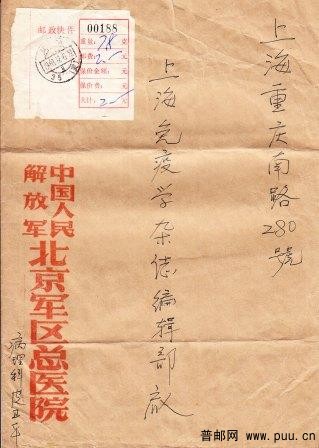 邮政快件
00188
重量: 78 克
邮费: 2- 元
保价金额: 元
保价费: 元
共计: 2- 元
上海重庆南路280號
上海免疫学杂志编辑部收
中国人民
解放军
北京军区总医院
病理科
普邮网 www.puu.cn